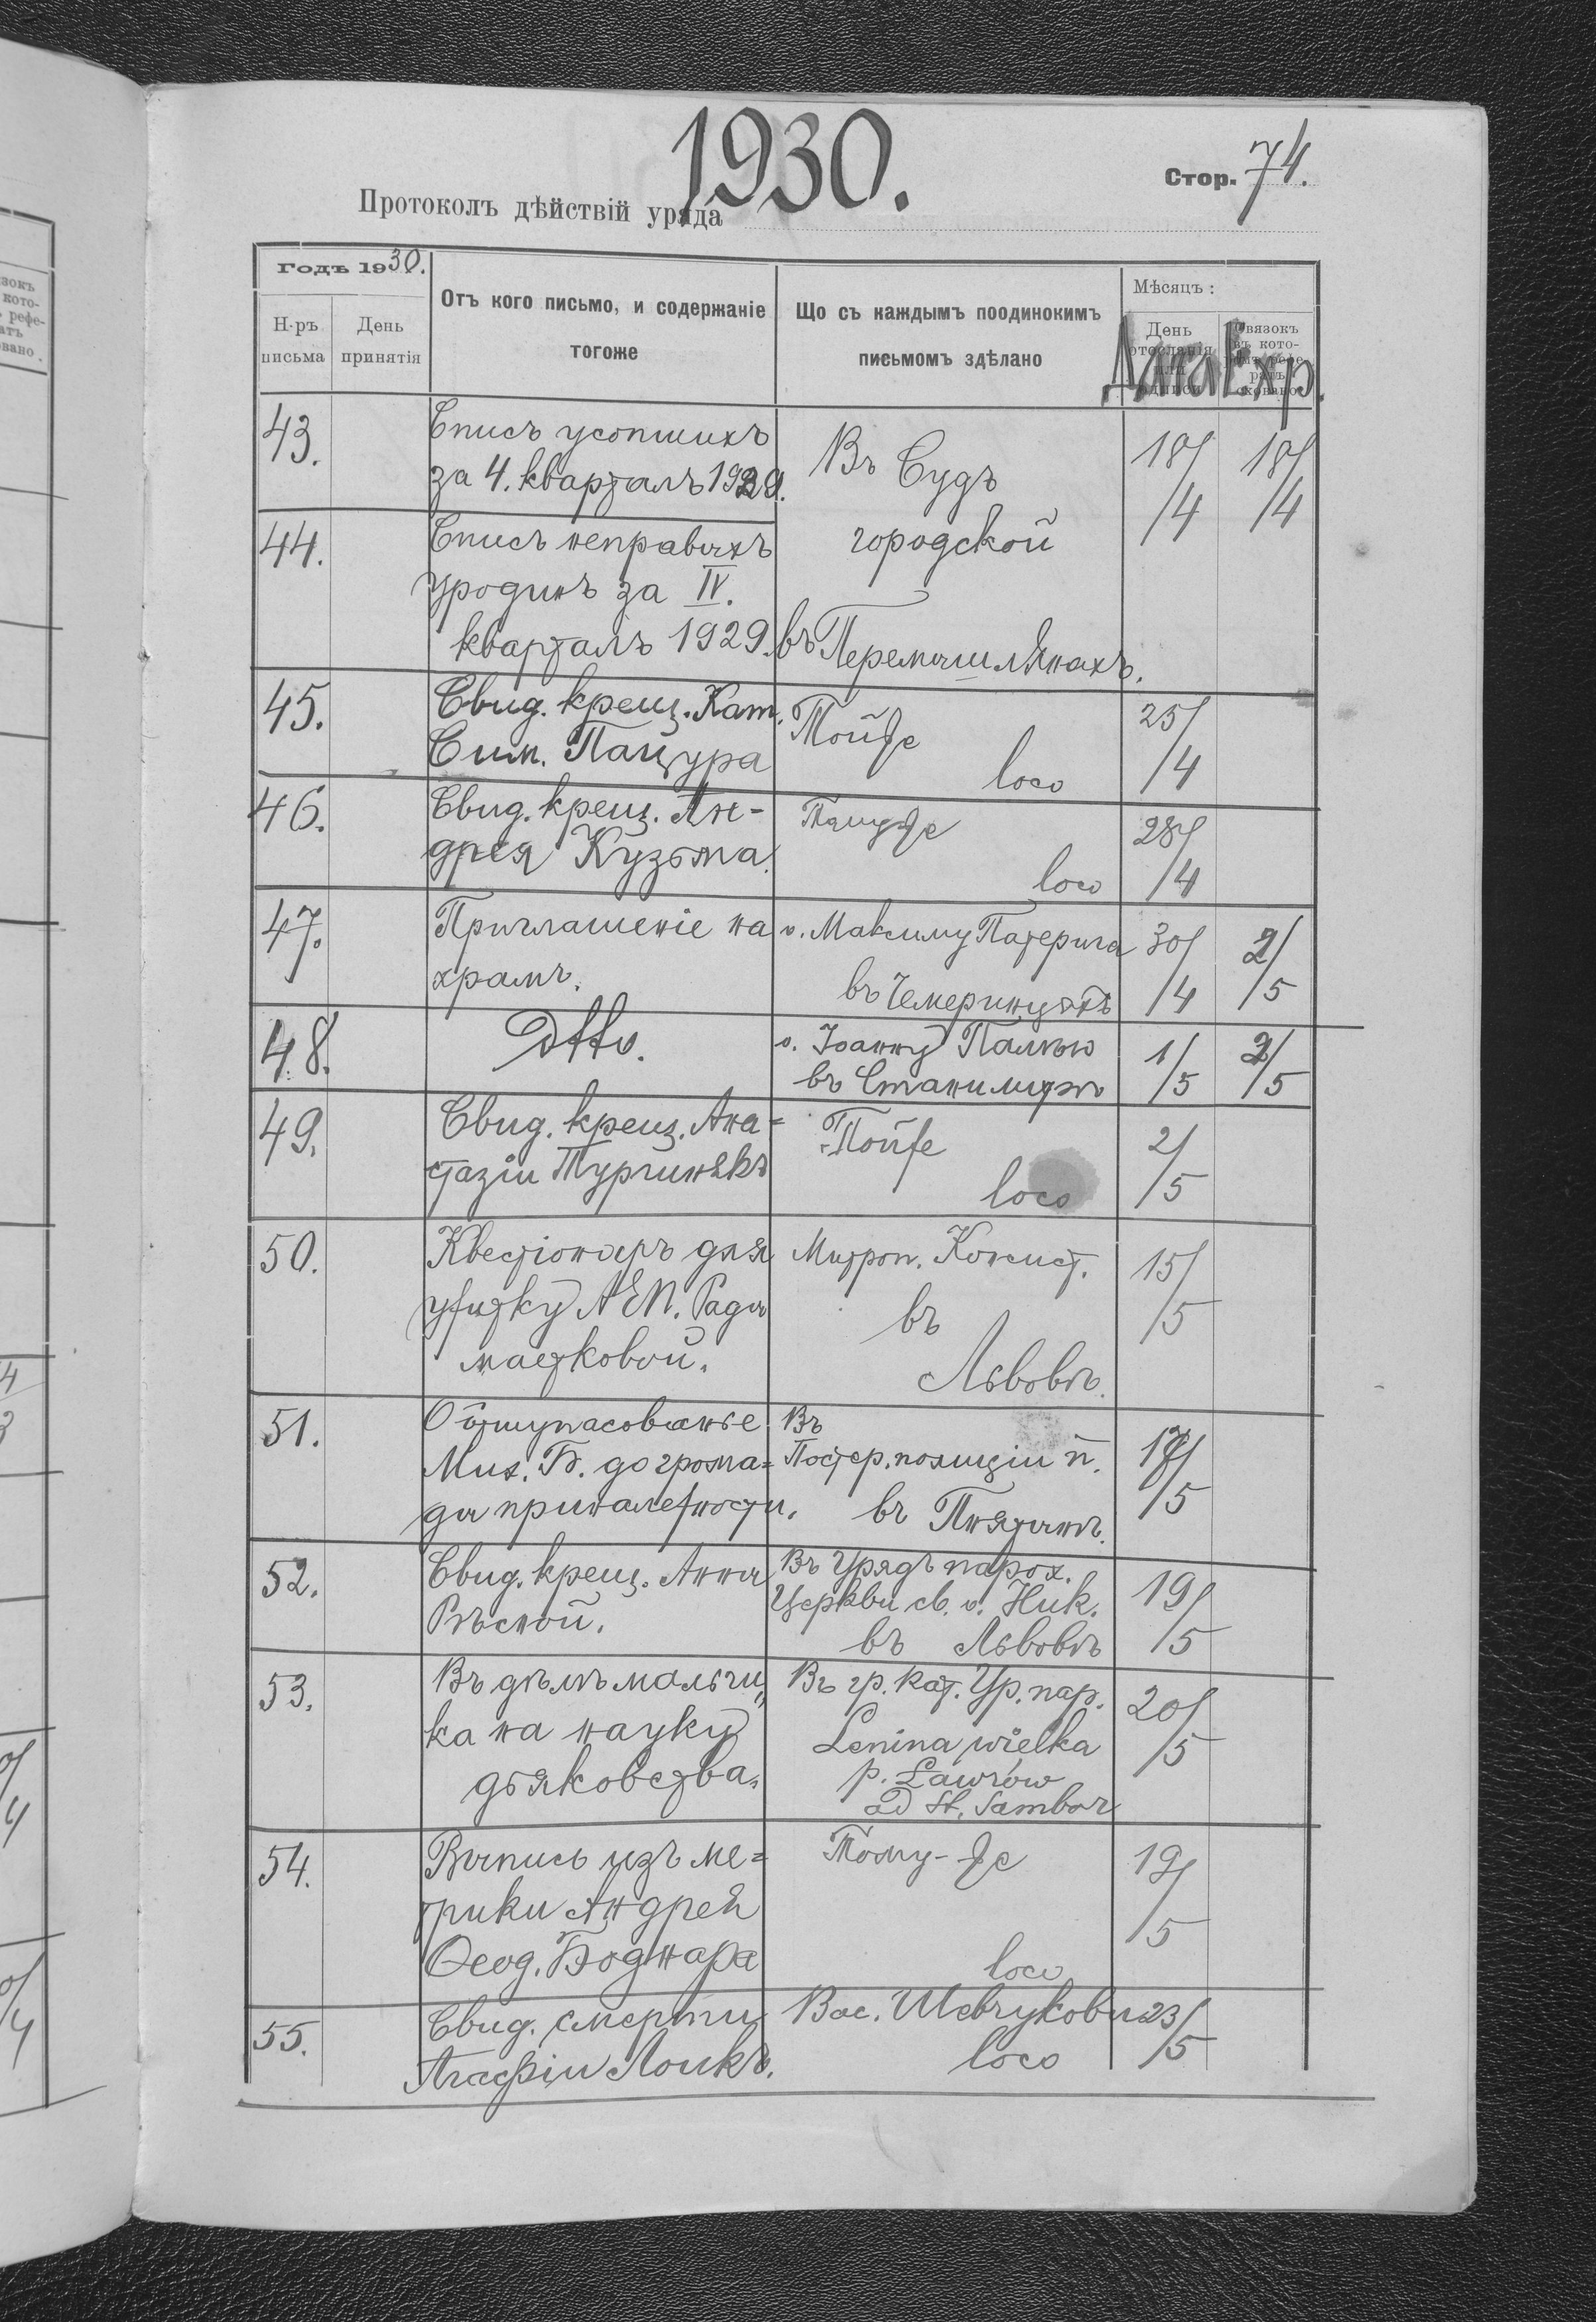 1930.
Стор. 74.
Протоколъ дѣйствій уряда
Годъ 1930.
Н-ръ письма
День принятія
Отъ кого письмо, и содержаніе
тогоже
Що съ каждымъ поодинокимъ
письмомъ здѣлано
Мѣсяцъ:
День отосланія или
Связокъ въ кото-
Дата Exp.
43.
Списъ усопшихъ
за 4. кварталъ 1929.
Въ Судъ
18/4
18/4
44.
Списъ неправыхъ
уродинъ за IV.
кварталъ 1929.
городской
въ Перемышлянахъ.
45.
Свид. крещ. Кат.
Сим. Пацура
Тойже
loco
25/4
46.
Свид. крещ. Ан-
дрея Кузьма.
Тому же
loco
28/4
47.
Приглашеніе на
храмъ.
о. Максиму Патерига
въ Чемеринцяхъ
30/4
2/5
48.
Dtto.
о. Іоанну Палкью
въ Станимирѣ
1/5
2/5
49.
Свид. крещ. Ана=
стазіи Тургинякъ
Тойже
loco
2/5
50.
Квестіонаръ для
ужитку АЕП. Рады
маетковой.
Митроп. Консист.
въ
Львовѣ.
15/5
51.
Отшупасованье
Мих. Б. до грома=
ды приналежности.
Въ
Постер. полиціи п.
въ Пнятынѣ.
17/5
52.
Свид. крещ. Анны
Рѣсной.
Въ Урядъ парох.
Церкви св. о. Ник.
въ Львовѣ
19/5
53.
Въ дѣлѣ мальчи„
ка на науку
дьяковства.
Въ гр. кат. Ур. пар.
Lenina wielka
p. Ławrów
ad St. Sambor
20/5
54.
Выпись изъ ме=
трики Андрея
Ѳеод. Боднара
Тому-же
loco
19/5
55.
Свид. смерти
Агафіи Лоикъ.
Вас. Шевчукови
loco
23/5